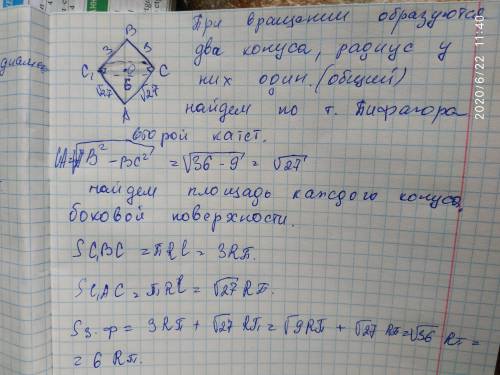 При вращении образуются
два конуса, радиус у
них один. (общий)
найдем по т. Пифагора
второй катет.
диамет
B
3 3
C₁ O C
Б
√27 √27
A
CA = √AB² - BC² = √36 - 9 = √27
найдем площадь каждого конуса,
боковой поверхности.
SC₁BC = πRl = 3Rπ.
SC₁AC = πRl = √27 Rπ.
Sз.ф = 3Rπ + √27 Rπ = √9Rπ + √27 Rπ = √36 Rπ =
= 6 Rπ.
2020/6/22 11:40